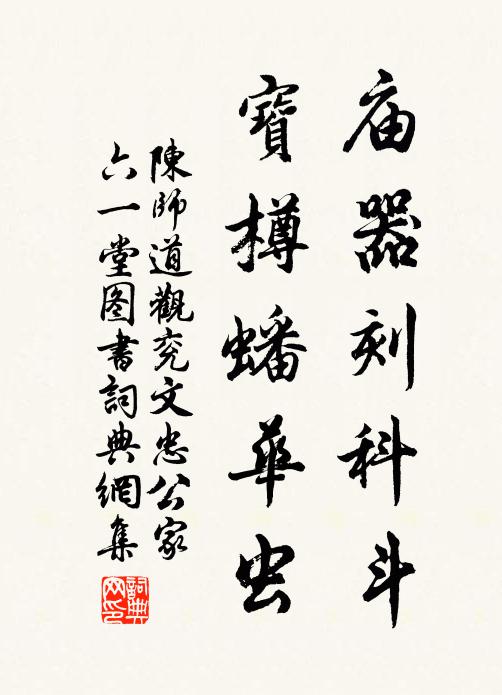 庙器刻科斗
寶樽蟠華虫
陳師道觀兖文忠公家
六一堂图書詞典網集
詞典网印